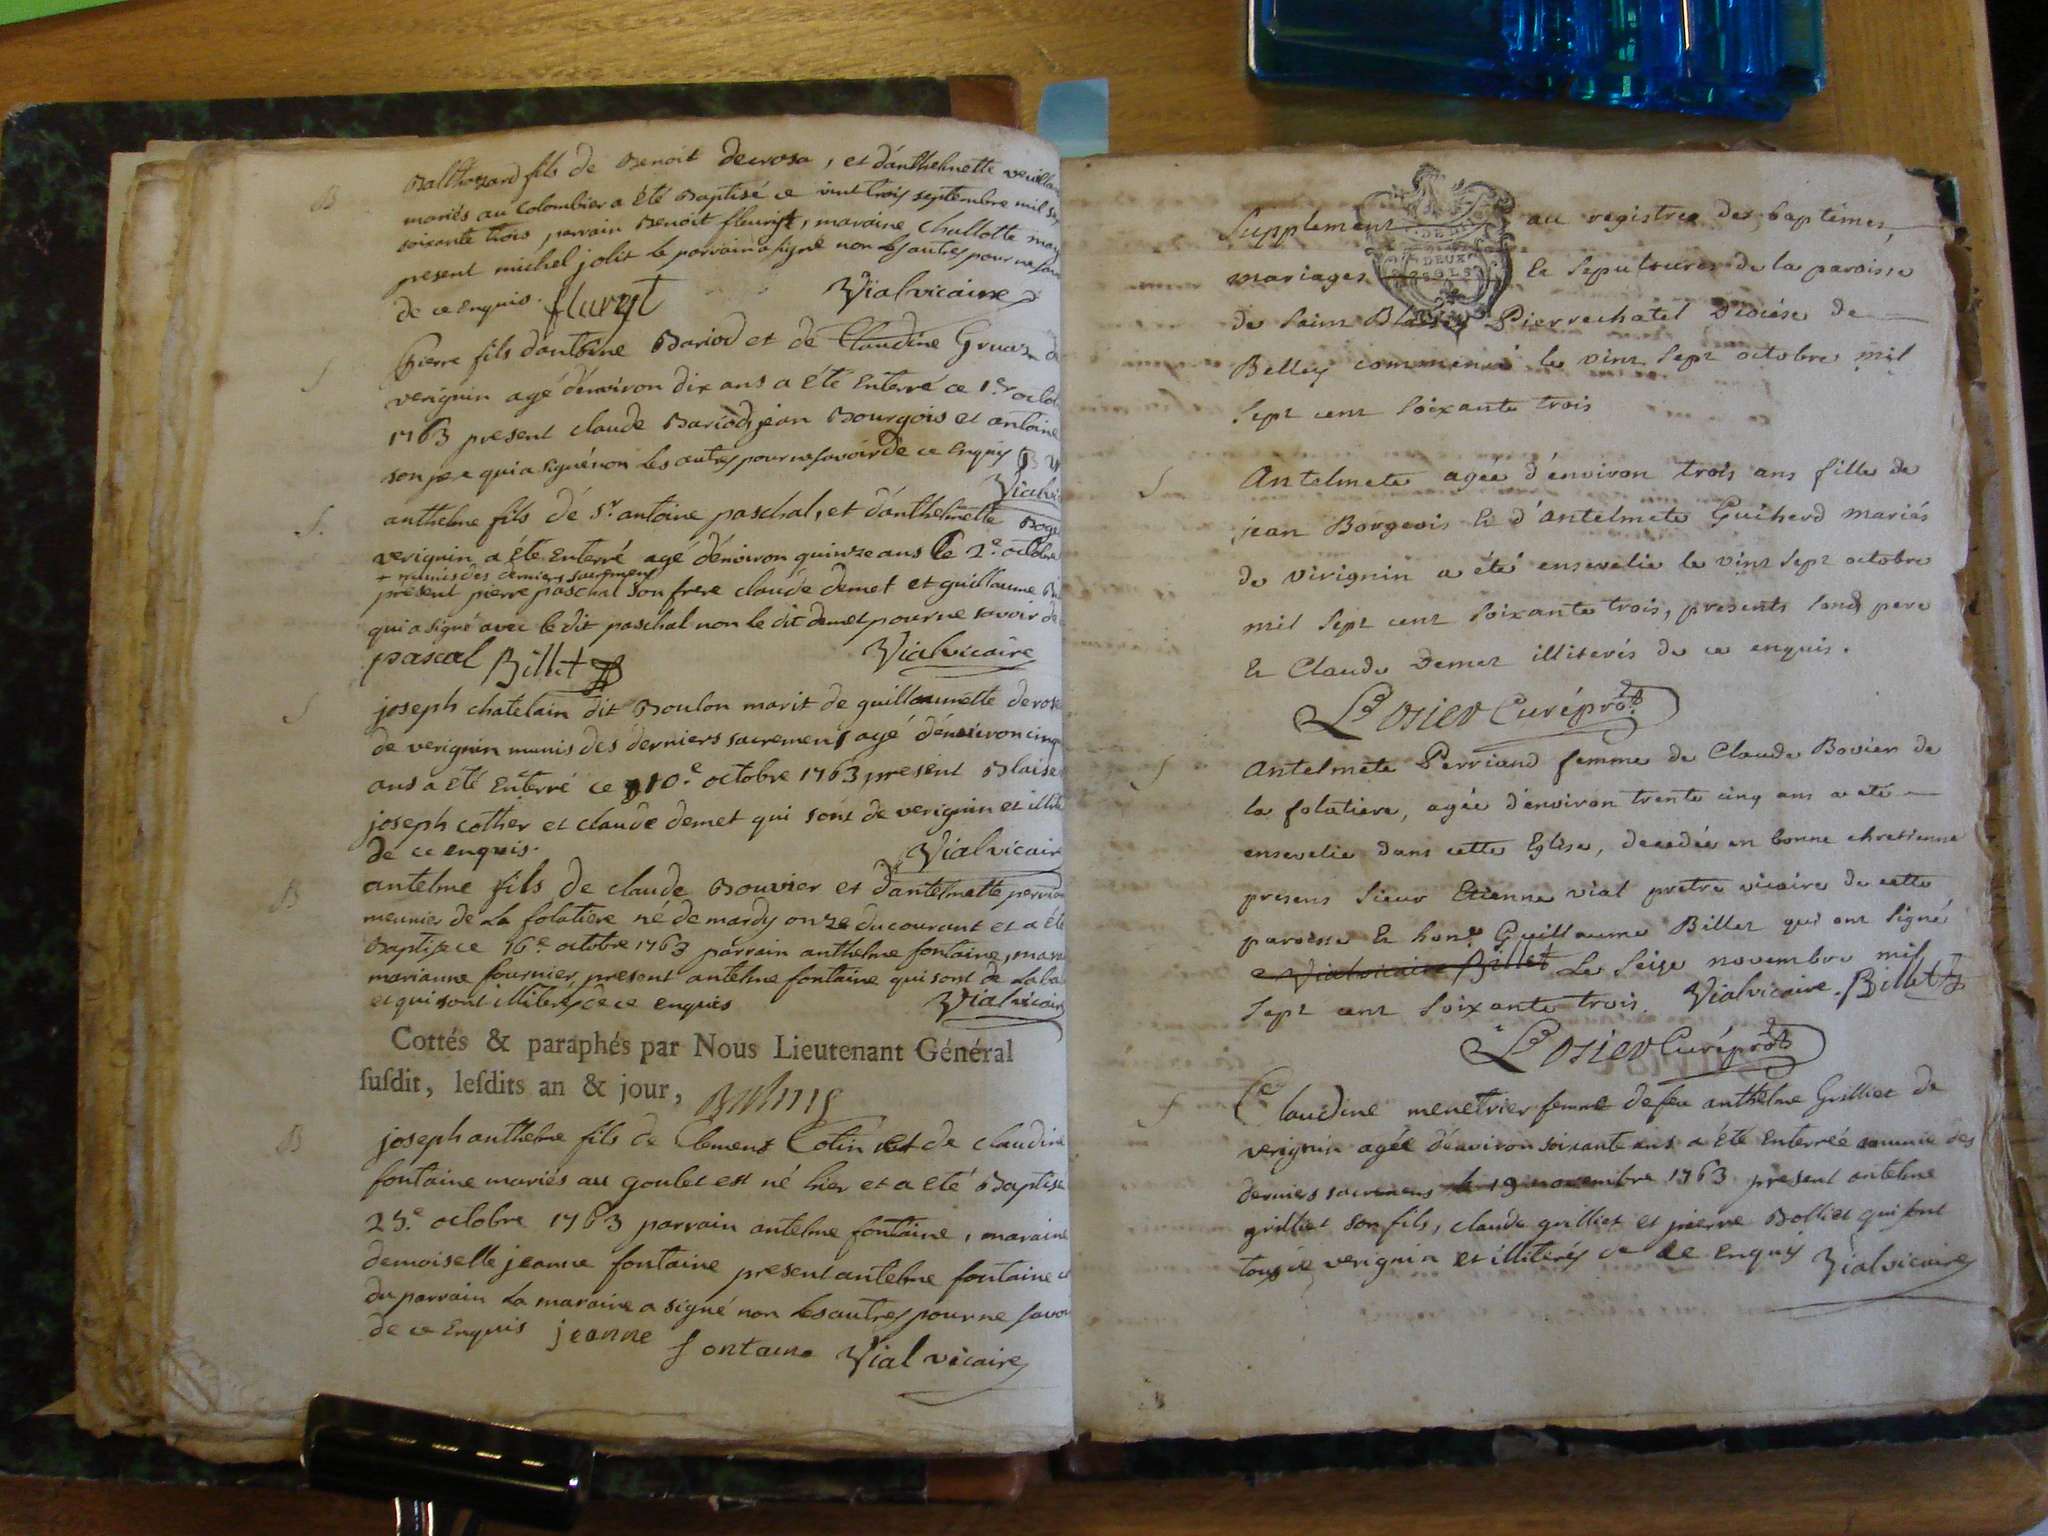 B
Balthazard fils de Benoit derosa, et d'anthelmette
mariés au Colombier a été Baptisé ce vint trois septembre mil
soixante trois, parrain Benoit fleuret, maraine Challotte
present michel jolit le parrain a signé non les autres pour ne
de ce enquis. fluret Vial vicaire
S
Pierre fils d'antoine Bariod et de Claudine Gruaz
verignin agé d'environ dix ans a été Enterré ce 1er
1763 present claude Bariod, jean Bourgois et antoine
son pere qui a signé non les autres pour ne savoir de ce Enquis
S.
anthelme fils de Sr. antoine paschal, et d'anthelmette
verignin a été Enterré agé d'environ quinze ans le 2e. octobre
+ munis des derniers sacremens
présent pierre paschal son frere claude demet et guillaume
qui a signé avec le dit paschal non le dit demet pour ne savoir
pascal Billet Vial vicaire
S
joseph chatelain dit Boulon marit de guillaumette
de verignin munis des derniers sacremens agé d'environ
ans a été Enterré ce 10e. octobre 1763, present Blaise
joseph cother et claude demet qui sont de verignin et
de ce enquis. Vial vicaire
B
antelme fils de claude Bouvier et d'antelmette
meunier de La folatiere né de mardy onze du courant et a été
Baptisé ce 16e octobre 1763 parrain anthelme fontaine,
marianne fournier, present antelme fontaine qui sont de
et qui sont illiterés de ce enquis Vial vicaire
Cottés & paraphés par Nous Lieutenant Général
ſuſdit, leſdits an & jour,
B
joseph anthelme fils de Clement Cotin et de claudine
fontaine mariés au goulet est né hier et a été Baptisé
25.e octobre 1763 parrain antelme fontaine, maraine
demoiselle jeanne fontaine present antelme fontaine
du parrain La maraine a signé non les autres pour ne
de ce Enquis jeanne fontaine Vial vicaire
Supplement au registre des baptêmes,
mariages, & sepultures de la paroisse
de Saint Blaise Pierrechatel Diocése de
Belley commencé le vint sept octobre mil
sept cent soixante trois
S
Antelmete agée d'environ trois ans fille de
jean Borgeois & d'Antelmete Guiherd mariés
de virignin a été ensevelie le vint sept octobre
mil sept cent soixante trois, presents
& Claude Demet illiterés de ce enquis.
Curé
S
Antelmete Perriand femme de Claude Bovier de
la folatiere, agée d'environ trente cinq ans a été
ensevelie dans cette Eglise, decedée en bonne chretienne
presens sieur Etienne vial pretre vicaire de cette
paroisse & Guillaume Billet qui ont signé
Vial vicaire Billet Le seize novembre mil
sept cent soixante trois. Vial vicaire. Billet
Curé
S
Claudine menetrier femme de feu anthelme Grilliet de
verignin agée d'environ soixante ans a été Enterrée munie des
derniers sacremens le 19 novembre 1763 present antelme
grilliet son fils, claude grilliet et pierre Bolliet qui sont
tous de verignin et illiterés de ce Enquis Vial vicaire